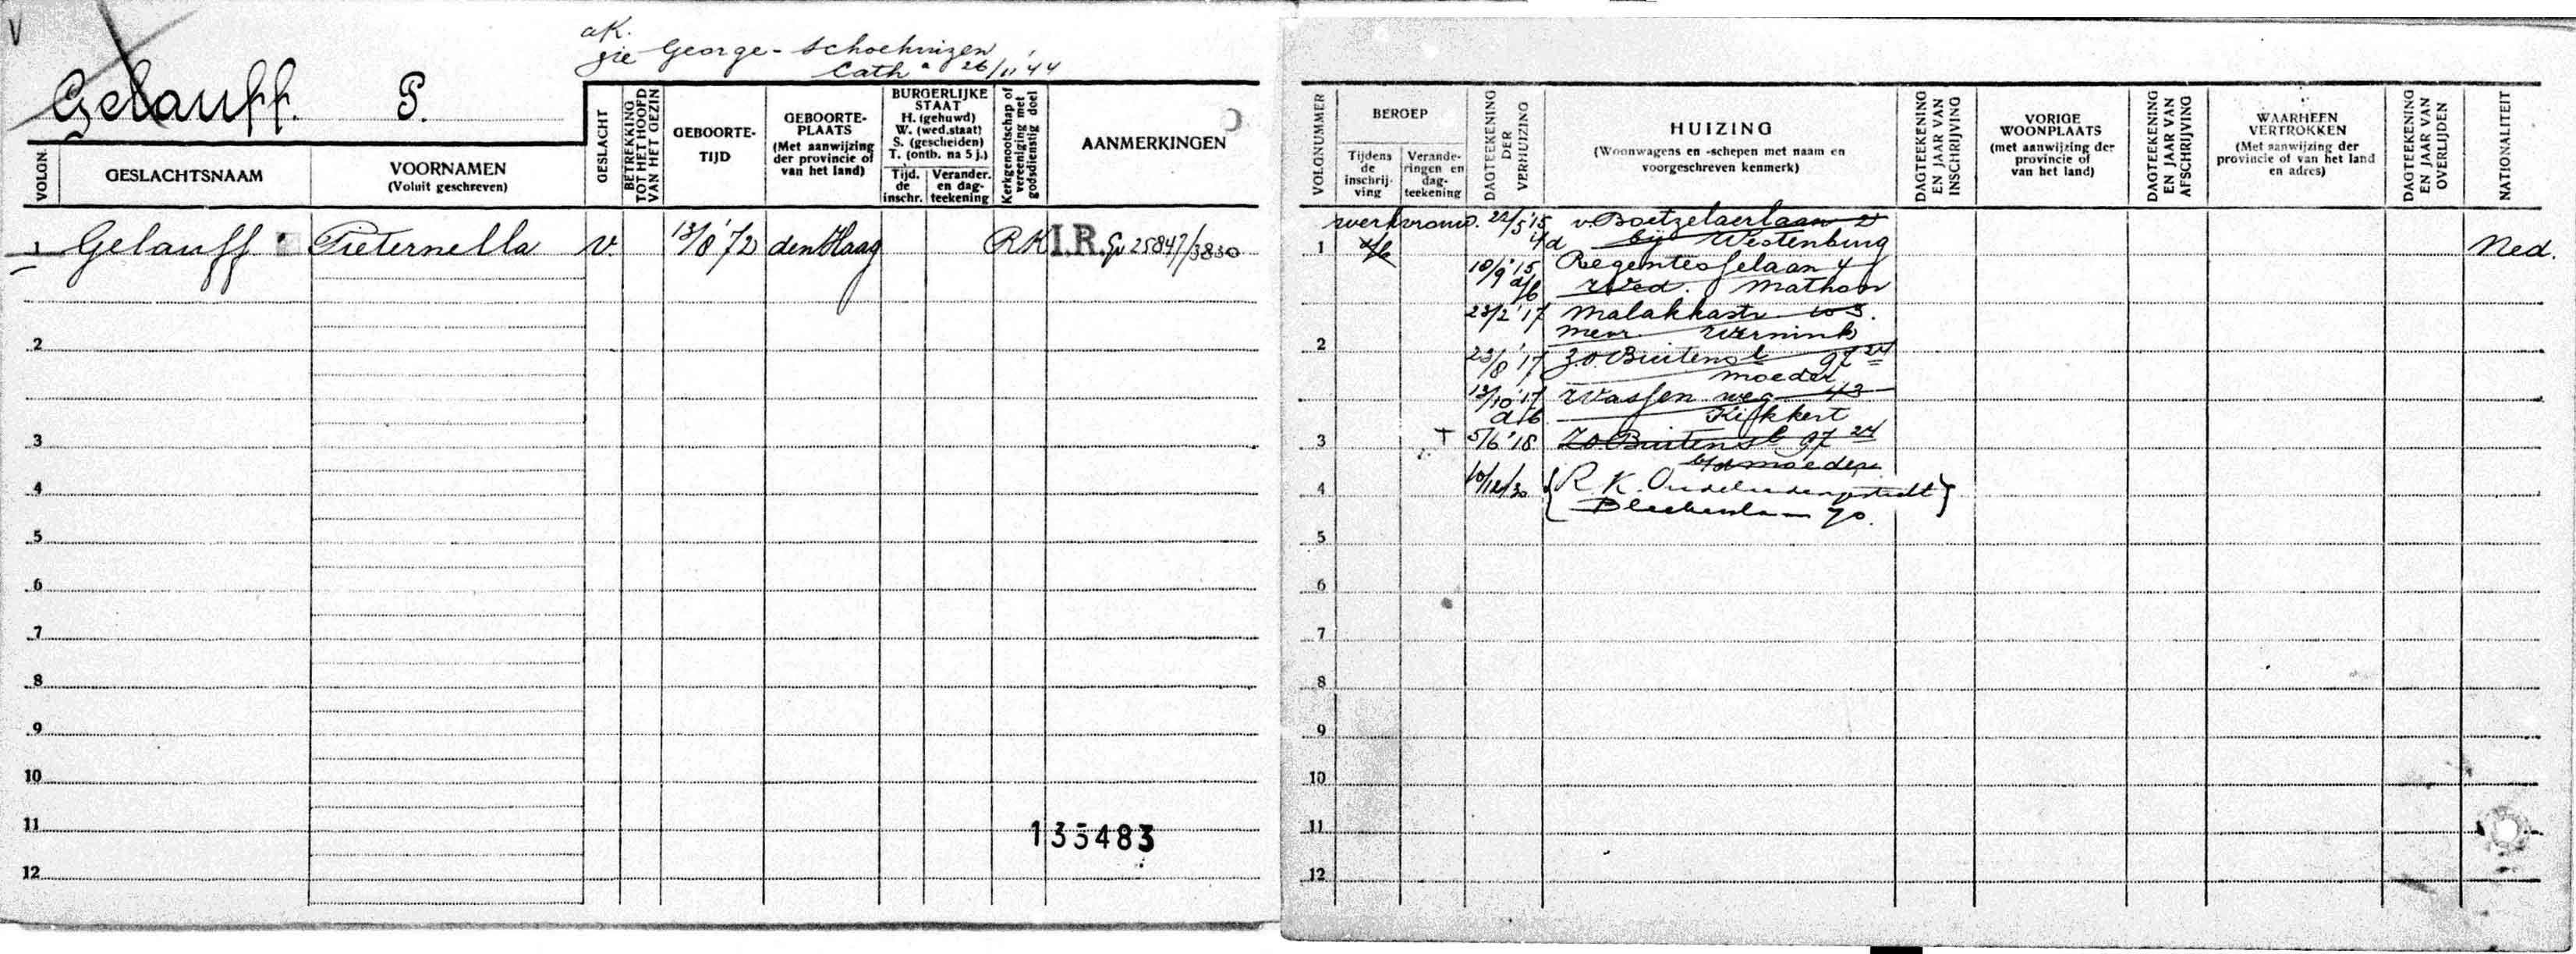 V
ak.
zie George - Schoehuizen
Cath. 26/11 '44
Gelauff. P.
VOLGN.
GESLACHTSNAAM
VOORNAMEN
(Voluit geschreven)
GESLACHT
BETREKKING TOT HET HOOFD VAN HET GEZIN
GEBOORTE-
TIJD
GEBOORTE-
PLAATS
(Met aanwijzing
der provincie of
van het land)
BURGERLIJKE
STAAT
H. (gehuwd)
W. (wed.staat)
S. (gescheiden)
T. (ontb. na 5 j.)
Tijd.
de
inschr.
Verander.
en dag-
teekening
Kerkgenootschap of vereeniging met godsdienstig doel
AANMERKINGEN
1 Gelauff Pieternella v. 13/8 '72 den Haag RK I.R. Gv 25847/3830
2
3
4
5
6
7
8
9
10
11
135483
12
VOLGNUMMER
BEROEP
Tijdens
de
inschrij-
ving
Verande-
ringen en
dag-
teekening
DAGTEEKENING DER VERHUIZING
HUIZING
(Woonwagens en -schepen met naam en
voorgeschreven kenmerk)
DAGTEEKENING EN JAAR VAN INSCHRIJVING
VORIGE
WOONPLAATS
(met aanwijzing der
provincie of
van het land)
DAGTEEKENING EN JAAR VAN AFSCHRIJVING
WAARHEEN
VERTROKKEN
(Met aanwijzing der
provincie of van het land
en adres)
DAGTEEKENING EN JAAR VAN OVERLIJDEN
NATIONALITEIT
werkvrouw. 22/5 '15 v. Boetzelaerlaan
1 d/b bij Westenburg Ned.
10/9 '15 Regentesselaan 4
d/b Wed. Mathon
23/2 '17 Malakkastr
Mevr Wernink
2
23/8 '17 Z.O. Buitenst 97 24
moeder
13/10 '17 Wassen weg 43
d/b Kijkkert
3 + 5/6 '18 Z.O. Buitenst 97 24
b/d moeder
4 10/12/30 R. K. Oudeliedengesticht
70.
5
6
7
8
9
10
11
12